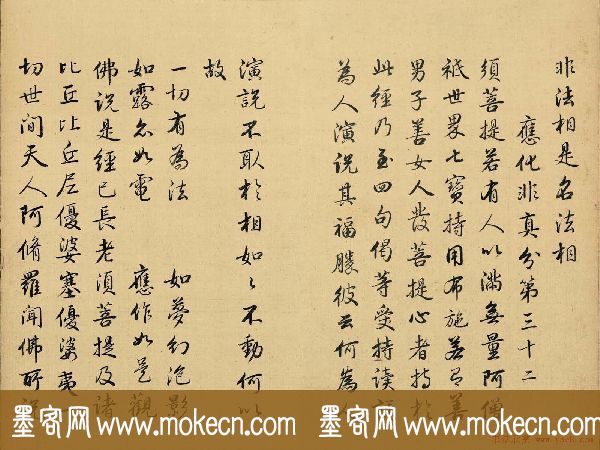 非法相是名法相
應化非真分第三十二
須菩提若有人以滿無量阿僧
祇世界七寶持用布施若有善
男子善女人發菩提心者持於
此經乃至四句偈等受持讀
為人演說其福勝彼云何為人
演說不取於相如々不動何以
故
一切有為法 如夢幻泡影
如露亦如電 應作如是觀
佛說是經已長老須菩提及諸
比丘比丘尼優婆塞優婆夷
切世間天人阿脩羅聞佛所說
墨客网 www.mokecn.com 墨客网 www.mokecn.com